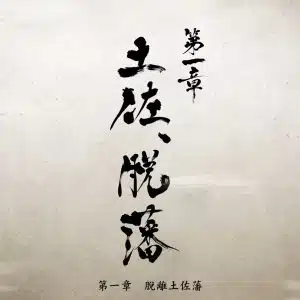 第一章
土佐、脱藩
第一章　脫離土佐藩